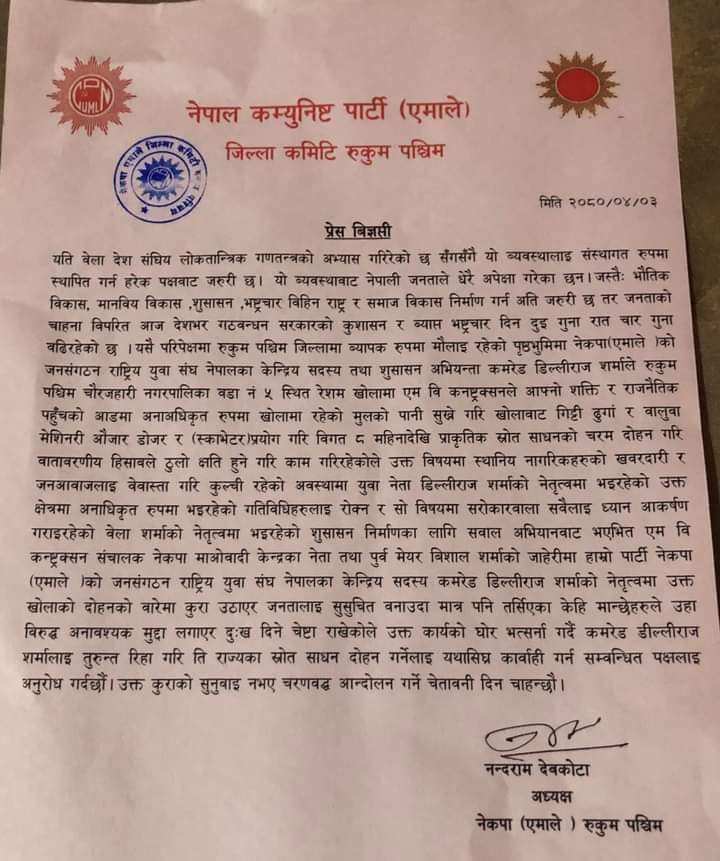 CPN
UML
नेपाल कम्युनिष्ट पार्टी (एमाले)
जिल्ला कमिटि रुकुम पश्चिम
मिति २०८०/०४/०३
प्रेस बिज्ञप्ती
यति वेला देश संघिय लोकतान्त्रिक गणतन्त्रको अभ्यास गरिरेको छ सँगसँगै यो व्यवस्थालाइ संस्थागत रुपमा
स्थापित गर्न हरेक पक्षवाट जरुरी छ। यो व्यवस्थावाट नेपाली जनताले धेरै अपेक्षा गरेका छन।जस्तैः भौतिक
विकास, मानविय विकास ,शुसासन ,भष्ट्रचार विहिन राष्ट्र र समाज विकास निर्माण गर्न अति जरुरी छ तर जनताको
चाहना विपरित आज देशभर गठवन्धन सरकारको कुशासन र ब्याप्त भष्ट्रचार दिन दुइ गुना रात चार गुना
वढिरहेको छ ।यसै परिपेक्षमा रुकुम पश्चिम जिल्लामा ब्यापक रुपमा मौलाइ रहेको पृष्ठभुमिमा नेकपा(एमाले )को
जनसंगठन राष्ट्रिय युवा संघ नेपालका केन्द्रिय सदस्य तथा शुसासन अभियन्ता कमरेड डिल्लीराज शर्माले रुकुम
पश्चिम चौरजहारी नगरपालिका वडा नं ५ स्थित रेशम खोलामा एम वि कनष्ट्रक्सनले आफ्नो शक्ति र राजनैतिक
पहुँचको आडमा अनाअधिकृत रुपमा खोलामा रहेको मुलको पानी सुख्ने गरि खोलावाट गिट्टी ढुगां र वालुवा
मेशिनरी औजार डोजर र (स्काभेटर)प्रयोग गरि विगत ८ महिनादेखि प्राकृतिक स्रोत साधनको चरम दोहन गरि
वातावरणीय हिसावले ठुलो क्षति हुने गरि काम गरिरहेकोले उक्त विषयमा स्थानिय नागरिकहरुको खवरदारी र
जनआवाजलाइ वेवास्ता गरि कुल्ची रहेको अवस्थामा युवा नेता डिल्लीराज शर्माको नेतृत्वमा भइरहेको उक्त
क्षेत्रमा अनाधिकृत रुपमा भइरहेको गतिविधिहरुलाइ रोक्न र सो विषयमा सरोकारवाला सवैलाइ ध्यान आकर्षण
गराइरहेको वेला शर्माको नेतृत्वमा भइरहेको शुसासन निर्माणका लागि सवाल अभियानवाट भएभित एम वि
कन्ष्ट्रक्सन संचालक नेकपा माओवादी केन्द्रका नेता तथा पुर्व मेयर विशाल शर्माको जाहेरीमा हाम्रो पार्टी नेकपा
(एमाले )को जनसंगठन राष्ट्रिय युवा संघ नेपालका केन्द्रिय सदस्य कमरेड डिल्लीराज शर्माको नेतृत्वमा उक्त
खोलाको दोहनको वारेमा कुरा उठाएर जनतालाइ सुसुचित वनाउदा मात्र पनि तर्सिएका केहि मान्छेहरुले उहा
विरुद्ध अनावश्यक मुद्दा लगाएर दुःख दिने चेष्टा राखेकोले उक्त कार्यको घोर भत्सर्ना गर्दै कमरेड डील्लीराज
शर्मालाइ तुरुन्त रिहा गरि ति राज्यका स्रोत साधन दोहन गर्नेलाइ यथासिघ्र कार्वाही गर्न सम्बन्धित पक्षलाइ
अनुरोध गर्दछौं। उक्त कुराको सुनुवाइ नभए चरणवद्ध आन्दोलन गर्ने चेतावनी दिन चाहन्छौ।
नन्दराम देवकोटा
अध्यक्ष
नेकपा (एमाले ) रुकुम पश्चिम